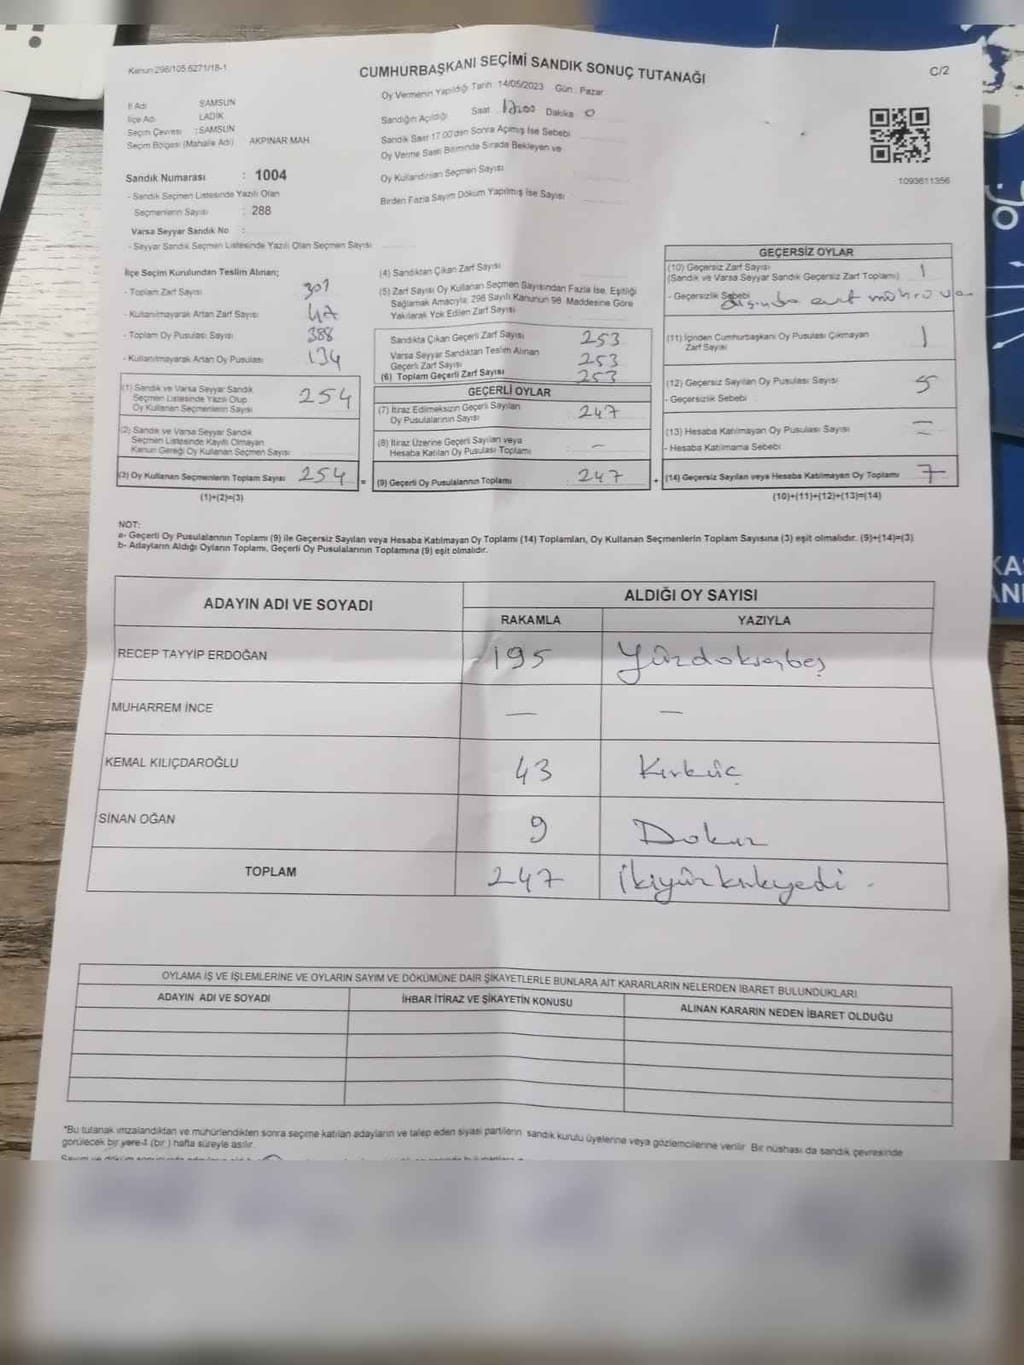 Kanun:298/105,6271/18-1
CUMHURBAŞKANI SEÇİMİ SANDIK SONUÇ TUTANAĞI
C/2
İl Adı SAMSUN
İlçe Adı LADİK
Seçim Çevresi : SAMSUN
Seçim Bölgesi (Mahalle Adı) AKPINAR MAH
Oy Vermenin Yapıldığı Tarih 14/05/2023 Gün : Pazar
Sandığın Açıldığı Saat 17:00 Dakika 0
Sandık Saat 17.00'den Sonra Açılmış İse Sebebi
Oy Verme Saati Bitiminde Sırada Bekleyen ve
Oy Kullandırılan Seçmen Sayısı
Birden Fazla Sayım Döküm Yapılmış İse Sayısı
1093611356
Sandık Numarası : 1004
- Sandık Seçmen Listesinde Yazılı Olan
Seçmenlerin Sayısı : 288
Varsa Seyyar Sandık No :
- Seyyar Sandık Seçmen Listesinde Yazılı Olan Seçmen Sayısı
İlçe Seçim Kurulundan Teslim Alınan;
- Toplam Zarf Sayısı 301
- Kullanılmayarak Artan Zarf Sayısı 47
- Toplam Oy Pusulası Sayısı 388
- Kullanılmayarak Artan Oy Pusulası 134
(1) Sandık ve Varsa Seyyar Sandık
Seçmen Listesinde Yazılı Olup
Oy Kullanan Seçmenlerin Sayısı 254
(2) Sandık ve Varsa Seyyar Sandık
Seçmen Listesinde Kayıtlı Olmayan
Kanun Gereği Oy Kullanan Seçmen Sayısı
(3) Oy Kullanan Seçmenlerin Toplam Sayısı 254 =
(1)+(2)=(3)
(4) Sandıktan Çıkan Zarf Sayısı
(5) Zarf Sayısı Oy Kullanan Seçmen Sayısından Fazla İse, Eşitliği
Sağlamak Amacıyla, 298 Sayılı Kanunun 98. Maddesine Göre
Yakılarak Yok Edilen Zarf Sayısı
Sandıkta Çıkan Geçerli Zarf Sayısı 253
Varsa Seyyar Sandıktan Teslim Alınan
Geçerli Zarf Sayısı 253
(6) Toplam Geçerli Zarf Sayısı 253
GEÇERLİ OYLAR
(7) İtiraz Edilmeksizin Geçerli Sayılan
Oy Pusulalarının Sayısı 247
(8) İtiraz Üzerine Geçerli Sayılan veya
Hesaba Katılan Oy Pusulası Toplamı —
(9) Geçerli Oy Pusulalarının Toplamı 247 +
GEÇERSİZ OYLAR
(10) Geçersiz Zarf Sayısı
(Sandık ve Varsa Seyyar Sandık Geçersiz Zarf Toplamı) 1
- Geçersizlik Sebebi evet mührü var
(11) İçinden Cumhurbaşkanı Oy Pusulası Çıkmayan
Zarf Sayısı 1
(12) Geçersiz Sayılan Oy Pusulası Sayısı 5
- Geçersizlik Sebebi
(13) Hesaba Katılmayan Oy Pusulası Sayısı —
- Hesaba Katılmama Sebebi —
(14) Geçersiz Sayılan veya Hesaba Katılmayan Oy Toplamı 7
(10)+(11)+(12)+(13)=(14)
NOT:
a- Geçerli Oy Pusulalarının Toplamı (9) ile Geçersiz Sayılan veya Hesaba Katılmayan Oy Toplamı (14) Toplamları, Oy Kullanan Seçmenlerin Toplam Sayısına (3) eşit olmalıdır. (9)+(14)=(3)
b- Adayların Aldığı Oyların Toplamı, Geçerli Oy Pusulalarının Toplamına (9) eşit olmalıdır.
ADAYIN ADI VE SOYADI ALDIĞI OY SAYISI
RAKAMLA YAZIYLA
RECEP TAYYİP ERDOĞAN 195 Yüzdoksanbeş
MUHARREM İNCE — —
KEMAL KILIÇDAROĞLU 43 Kırküç
SİNAN OĞAN 9 Dokuz
TOPLAM 247 İkiyüzkırkyedi
OYLAMA İŞ VE İŞLEMLERİNE VE OYLARIN SAYIM VE DÖKÜMÜNE DAİR ŞİKAYETLERLE BUNLARA AİT KARARLARIN NELERDEN İBARET BULUNDUKLARI
ADAYIN ADI VE SOYADI İHBAR İTİRAZ VE ŞİKAYETİN KONUSU ALINAN KARARIN NEDEN İBARET OLDUĞU
*Bu tutanak imzalandıktan ve mühürlendikten sonra seçime katılan adayların ve talep eden siyasi partilerin sandık kurulu üyelerine veya gözlemcilerine verilir. Bir nüshası da sandık çevresinde
görülecek bir yere 1 (bir) hafta süreyle asılır.